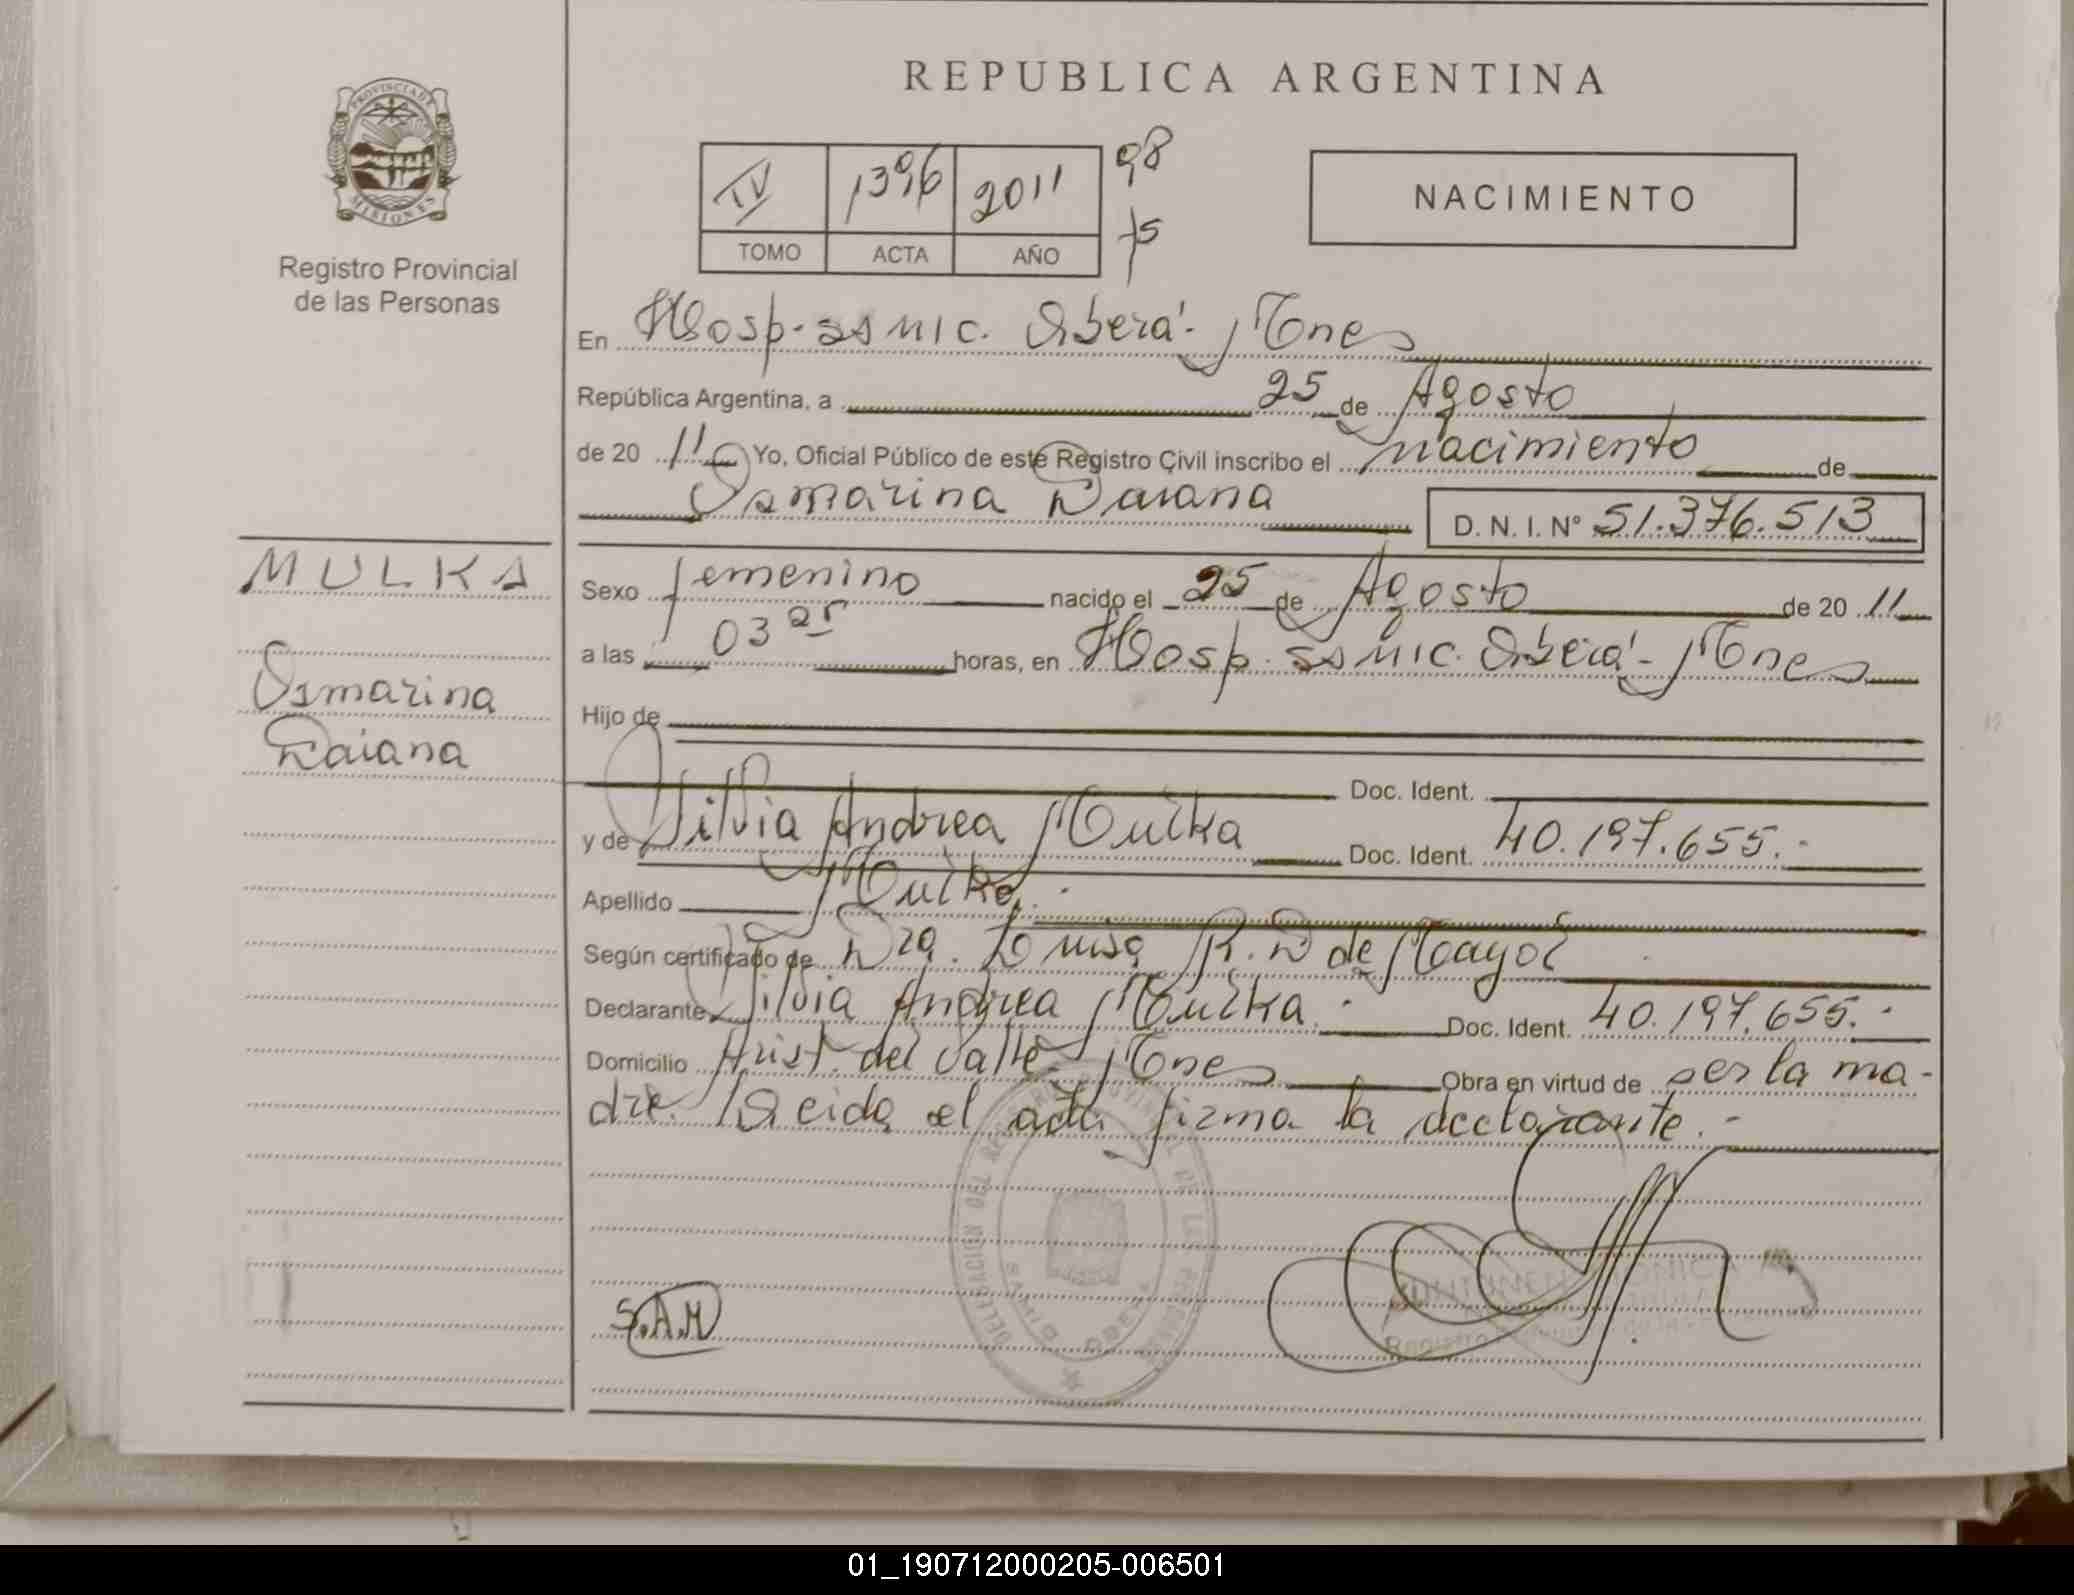 REPUBLICA ARGENTINA
PROVINCIA DE
MISIONES
Registro Provincial
de las Personas
IV 1396 2011 98
TOMO ACTA AÑO 75
NACIMIENTO
En Hosp. SSMIC. Oberá - Mnes
República Argentina, a 25 de Agosto
de 20 11 Yo, Oficial Público de este Registro Civil inscribo el nacimiento de
Ismarina Daiana D. N. I. N° 51.376.513
MULKA
Ismarina
Daiana
Sexo femenino nacido el 25 de Agosto de 20 11
a las 03 25 horas, en Hosp. SSMIC. Oberá - Mnes
Hijo de
Doc. Ident.
y de Silvia Andrea Mulka Doc. Ident. 40.197.655.-
Apellido Mulka.-
Según certificado de Dra. Luisa R. D de Mayol
Declarante Silvia Andrea Mulka.- Doc. Ident. 40.197.655.-
Domicilio Arist. del Valle Mnes Obra en virtud de ser la ma-
dre. Leida el acta firma la declarante.-
S.A.M
DELEGACION DEL REGISTRO PROVINCIAL DE LAS PERSONAS
OBERA
01_190712000205-006501